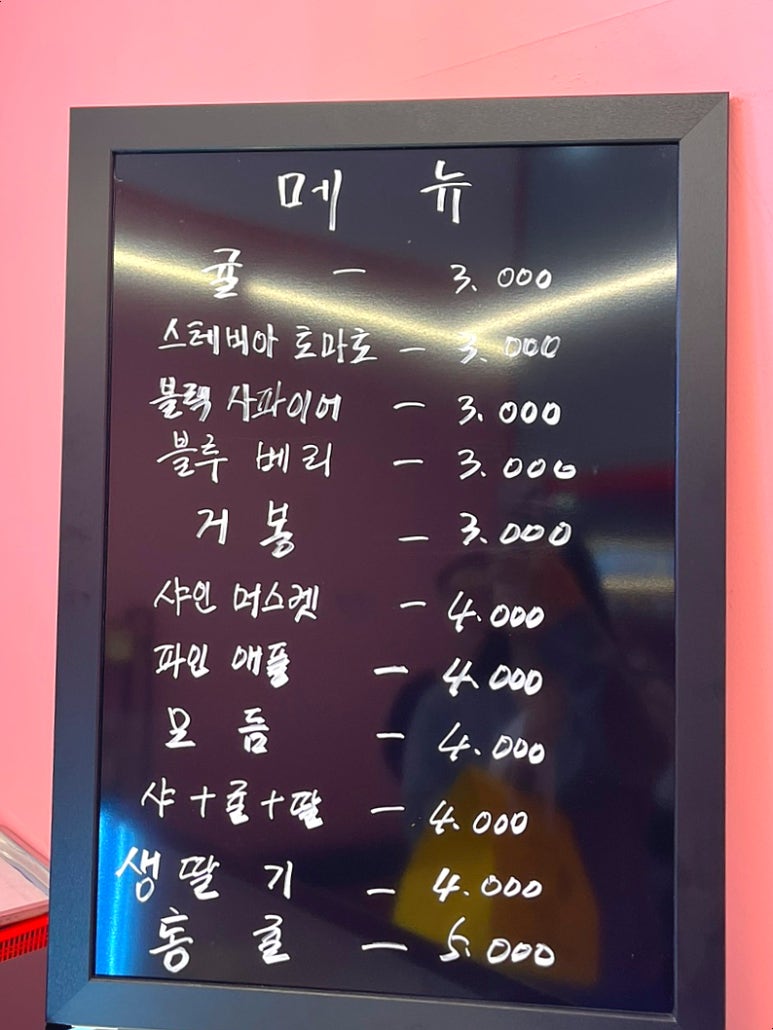 메 뉴
귤 - 3.000
스테비아 토마토 - 3.000
블랙 사파이어 - 3.000
블루 베리 - 3.000
거 봉 - 3.000
샤인 머스켓 - 4.000
파인 애플 - 4.000
모 듬 - 4.000
샤+귤+딸 - 4.000
생 딸 기 - 4.000
통 귤 - 5.000